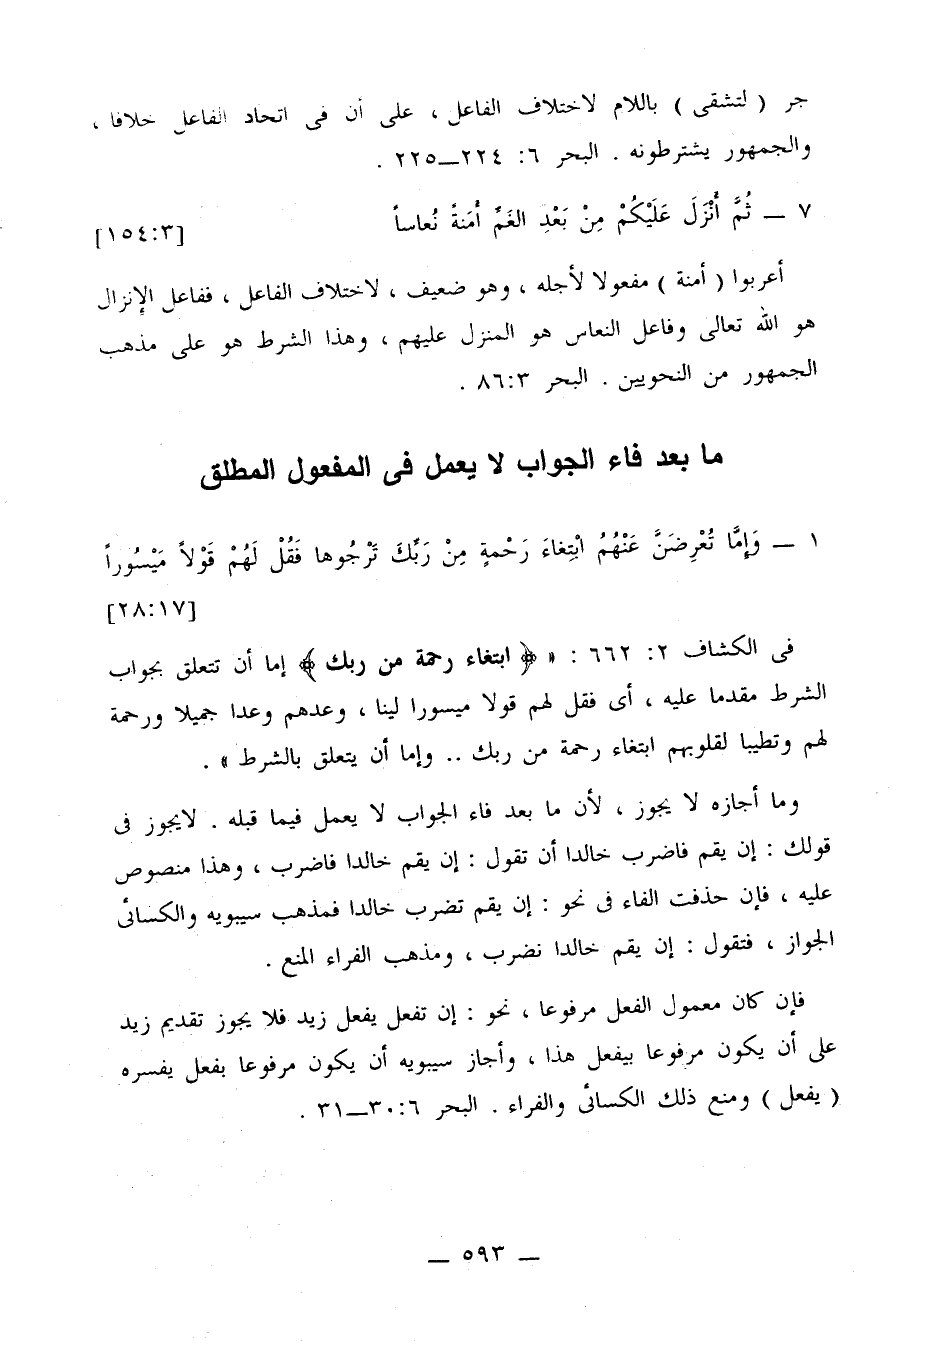 جر ( لتشقى ) باللام لاختلاف الفاعل ، على أن فى اتحاد الفاعل خلافا ،
والجمهور يشترطونه . البحر ٦: ٢٢٤ــ٢٢٥ .
٧ ــ ثُمَّ أَنْزَلَ عَلَيْكُمْ مِنْ بَعْدِ الغَمِّ أَمَنَةً نُعاساً [١٥٤:٣]
أعربوا ( أمنة ) مفعولا لأجله ، وهو ضعيف ، لاختلاف الفاعل ، ففاعل الإنزال
هو الله تعالى وفاعل النعاس هو المنزل عليهم ، وهذا الشرط هو على مذهب
الجمهور من النحويين . البحر ٨٦:٣ .
ما بعد فاء الجواب لا يعمل فى المفعول المطلق
١ ــ وَإِمَّا تُعْرِضَنَّ عَنْهُمُ ابْتِغاءَ رَحْمةٍ مِنْ رَبِّكَ تَرْجُوها فَقُلْ لَهُمْ قَوْلاً مَيْسُوراً
[٢٨:١٧]
فى الكشاف ٢: ٦٦٢ : « ﴿ ابتغاء رحمة من ربك ﴾ إما أن تتعلق بجواب
الشرط مقدما عليه ، أى فقل لهم قولا ميسورا لينا ، وعدهم وعدا جميلا ورحمة
لهم وتطيبا لقلوبهم ابتغاء رحمة من ربك .. وإما أن يتعلق بالشرط » .
وما أجازه لا يجوز ، لأن ما بعد فاء الجواب لا يعمل فيما قبله . لايجوز فى
قولك : إن يقم فاضرب خالدا أن تقول : إن يقم خالدا فاضرب ، وهذا منصوص
عليه ، فإن حذفت الفاء فى نحو : إن يقم تضرب خالدا فمذهب سيبويه والكسائى
الجواز ، فتقول : إن يقم خالدا نضرب ، ومذهب الفراء المنع .
فإن كان معمول الفعل مرفوعا ، نحو : إن تفعل يفعل زيد فلا يجوز تقديم زيد
على أن يكون مرفوعا بيفعل هذا ، وأجاز سيبويه أن يكون مرفوعا بفعل يفسره
( يفعل ) ومنع ذلك الكسائى والفراء . البحر ٣٠:٦ــ٣١ .
ــ ٥٩٣ ــ